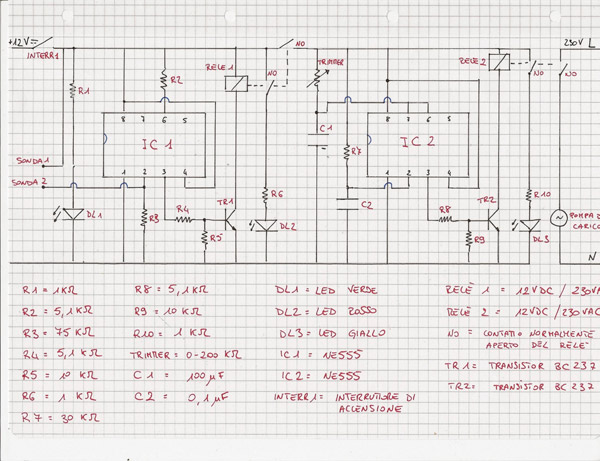 +12V=
INTERR1
R1
R2
RELE'1
NO
NO
TRIMMER
RELE'2
NO
NO
230V L
8 7 6 5
IC 1
1 2 3 4
C1
R7
8 7 6 5
IC 2
1 2 3 4
SONDA 1
SONDA 2
DL1
R3
R4
R5
TR1
R6
DL2
C2
R8
R9
TR2
R10
DL3
POMPA DI
CARICO
N
R1 = 1KΩ
R2 = 5,1 KΩ
R3 = 75 KΩ
R4 = 5,1 KΩ
R5 = 10 KΩ
R6 = 1 KΩ
R7 = 30 KΩ
R8 = 5,1 KΩ
R9 = 10 KΩ
R10 = 1 KΩ
TRIMMER = 0-200 KΩ
C1 = 100 µF
C2 = 0,1 µF
DL1 = LED VERDE
DL2 = LED ROSSO
DL3 = LED GIALLO
IC1 = NE555
IC2 = NE555
INTERR1 = INTERRUTTORE DI
ACCENSIONE
RELÈ 1 = 12VDC / 230VA
RELÈ 2 = 12VDC / 230VAC
NO = CONTATTO NORMALMENTE
APERTO DEL RELE'
TR1 = TRANSISTOR BC 237
TR2 = TRANSISTOR BC 237